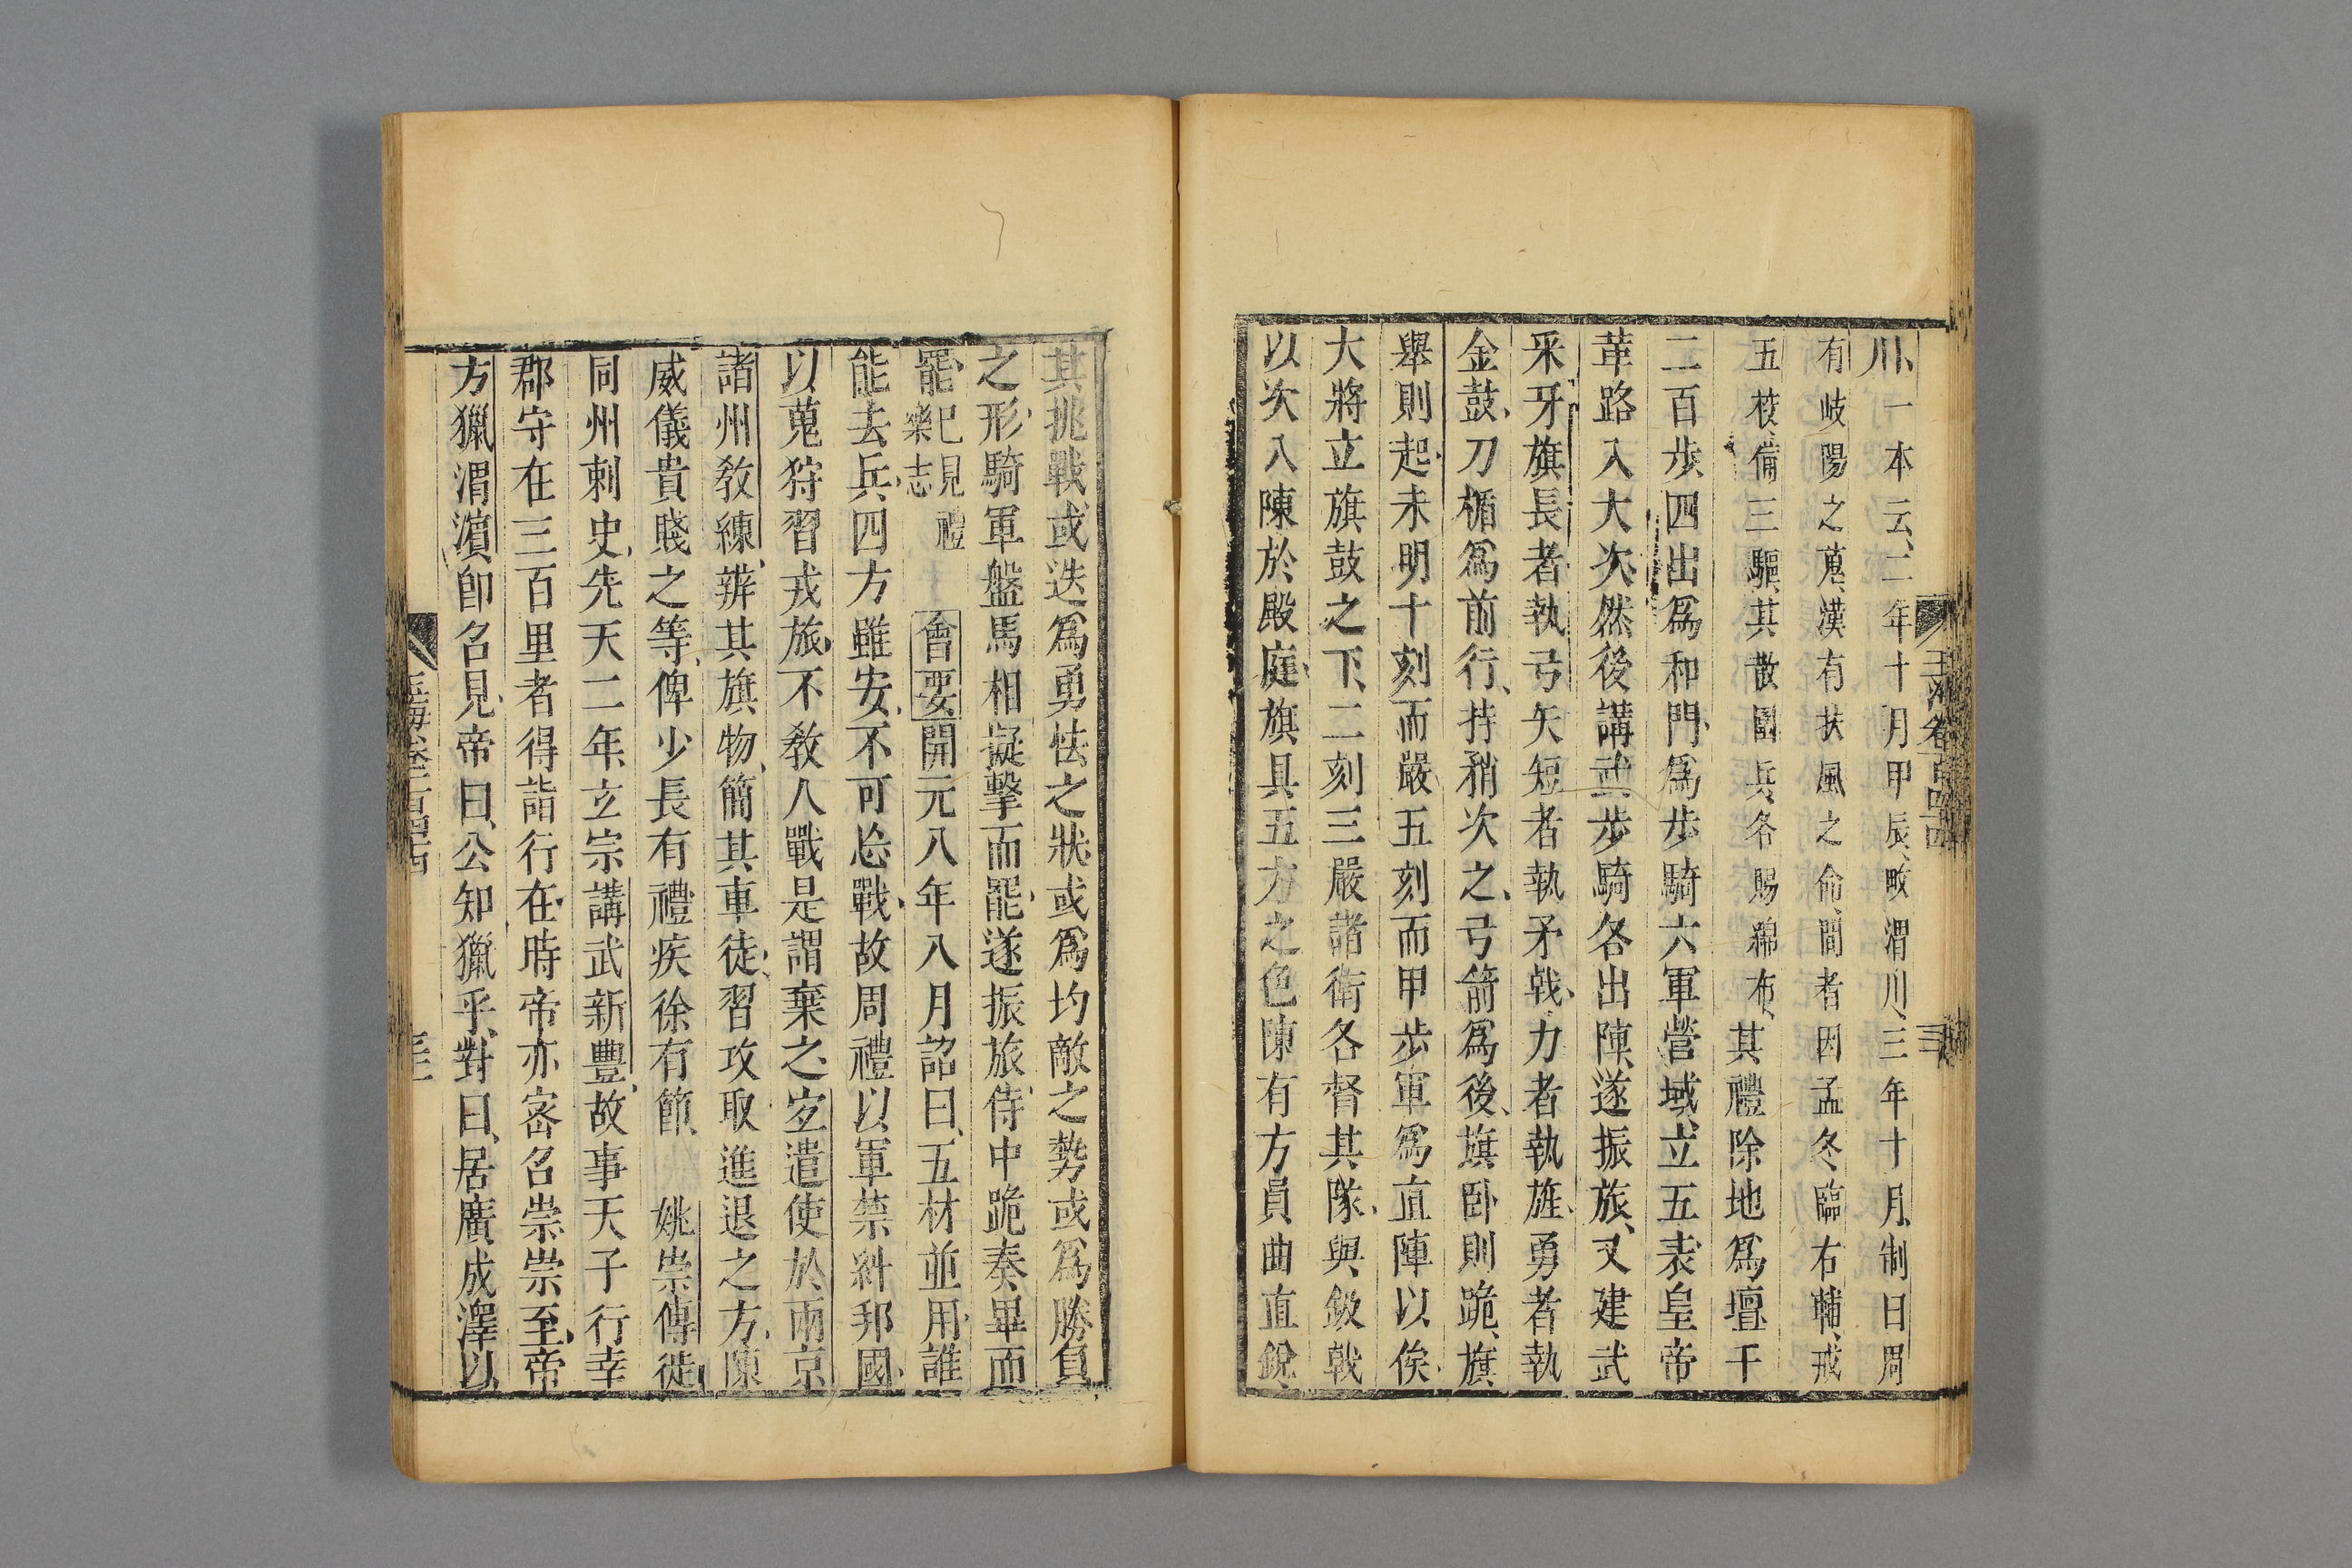 川一本云二年十月甲辰畋渭川三年十月制曰周
有岐陽之蒐漢有扶風之命間者因孟冬臨右輔戒
五校備三驅其散圍兵各賜綿布其禮除地爲壇千
二百步四出爲和門爲步騎六軍營域立五表皇帝
革路入大次然後講武步騎各出陣遂振旅又建武
采牙旗長者執弓矢短者執矛戟力者執旌勇者執
金鼓刀楯爲前行持矟次之弓箭爲後旗卧則跪旗
舉則起未明十刻而嚴五刻而甲步軍爲直陣以俟
大將立旗鼓之下二刻三嚴諸衛各督其隊與鈒戟
以次入陳於殿庭旗具五方之色陳有方員曲直銳
其挑戰或迭爲勇怯之狀或爲均敵之勢或爲勝負
之形騎軍盤馬相擬擊而罷遂振旅侍中跪奏畢而
罷巳見禮樂志 會要開元八年八月詔曰五材並用誰
能去兵四方雖安不可忘戰故周禮以軍禁糾邦國
以蒐狩習戎旅不敎人戰是謂棄之宐遣使於兩京
諸州敎練辨其旗物簡其車徒習攻取進退之方陳
威儀貴賤之等俾少長有禮疾徐有節 姚崇傳徙
同州刺史先天二年玄宗講武新豐故事天子行幸
郡守在三百里者得詣行在時帝亦宻召崇崇至帝
方獵渭濵卽召見帝曰公知獵乎對曰居廣成澤以